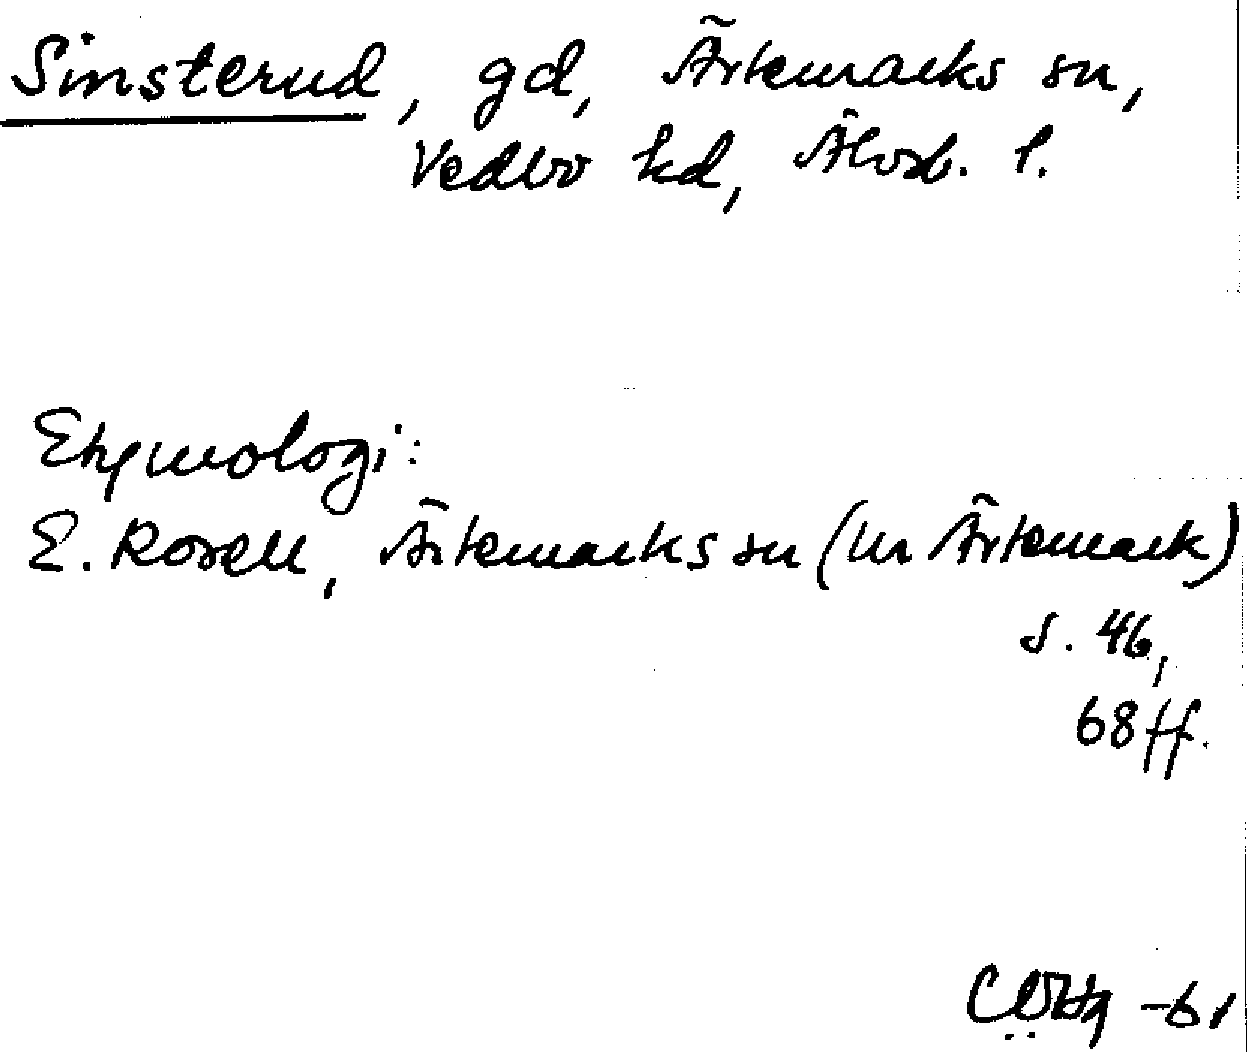 Sinsterud, gd, Ärtemarks sn,
Vedbo hd, Älvsb. l.
Etymologi:
E. Rosell, Ärtemarks sn (ur Ärtemark)
s. 46,
68 ff.
-61